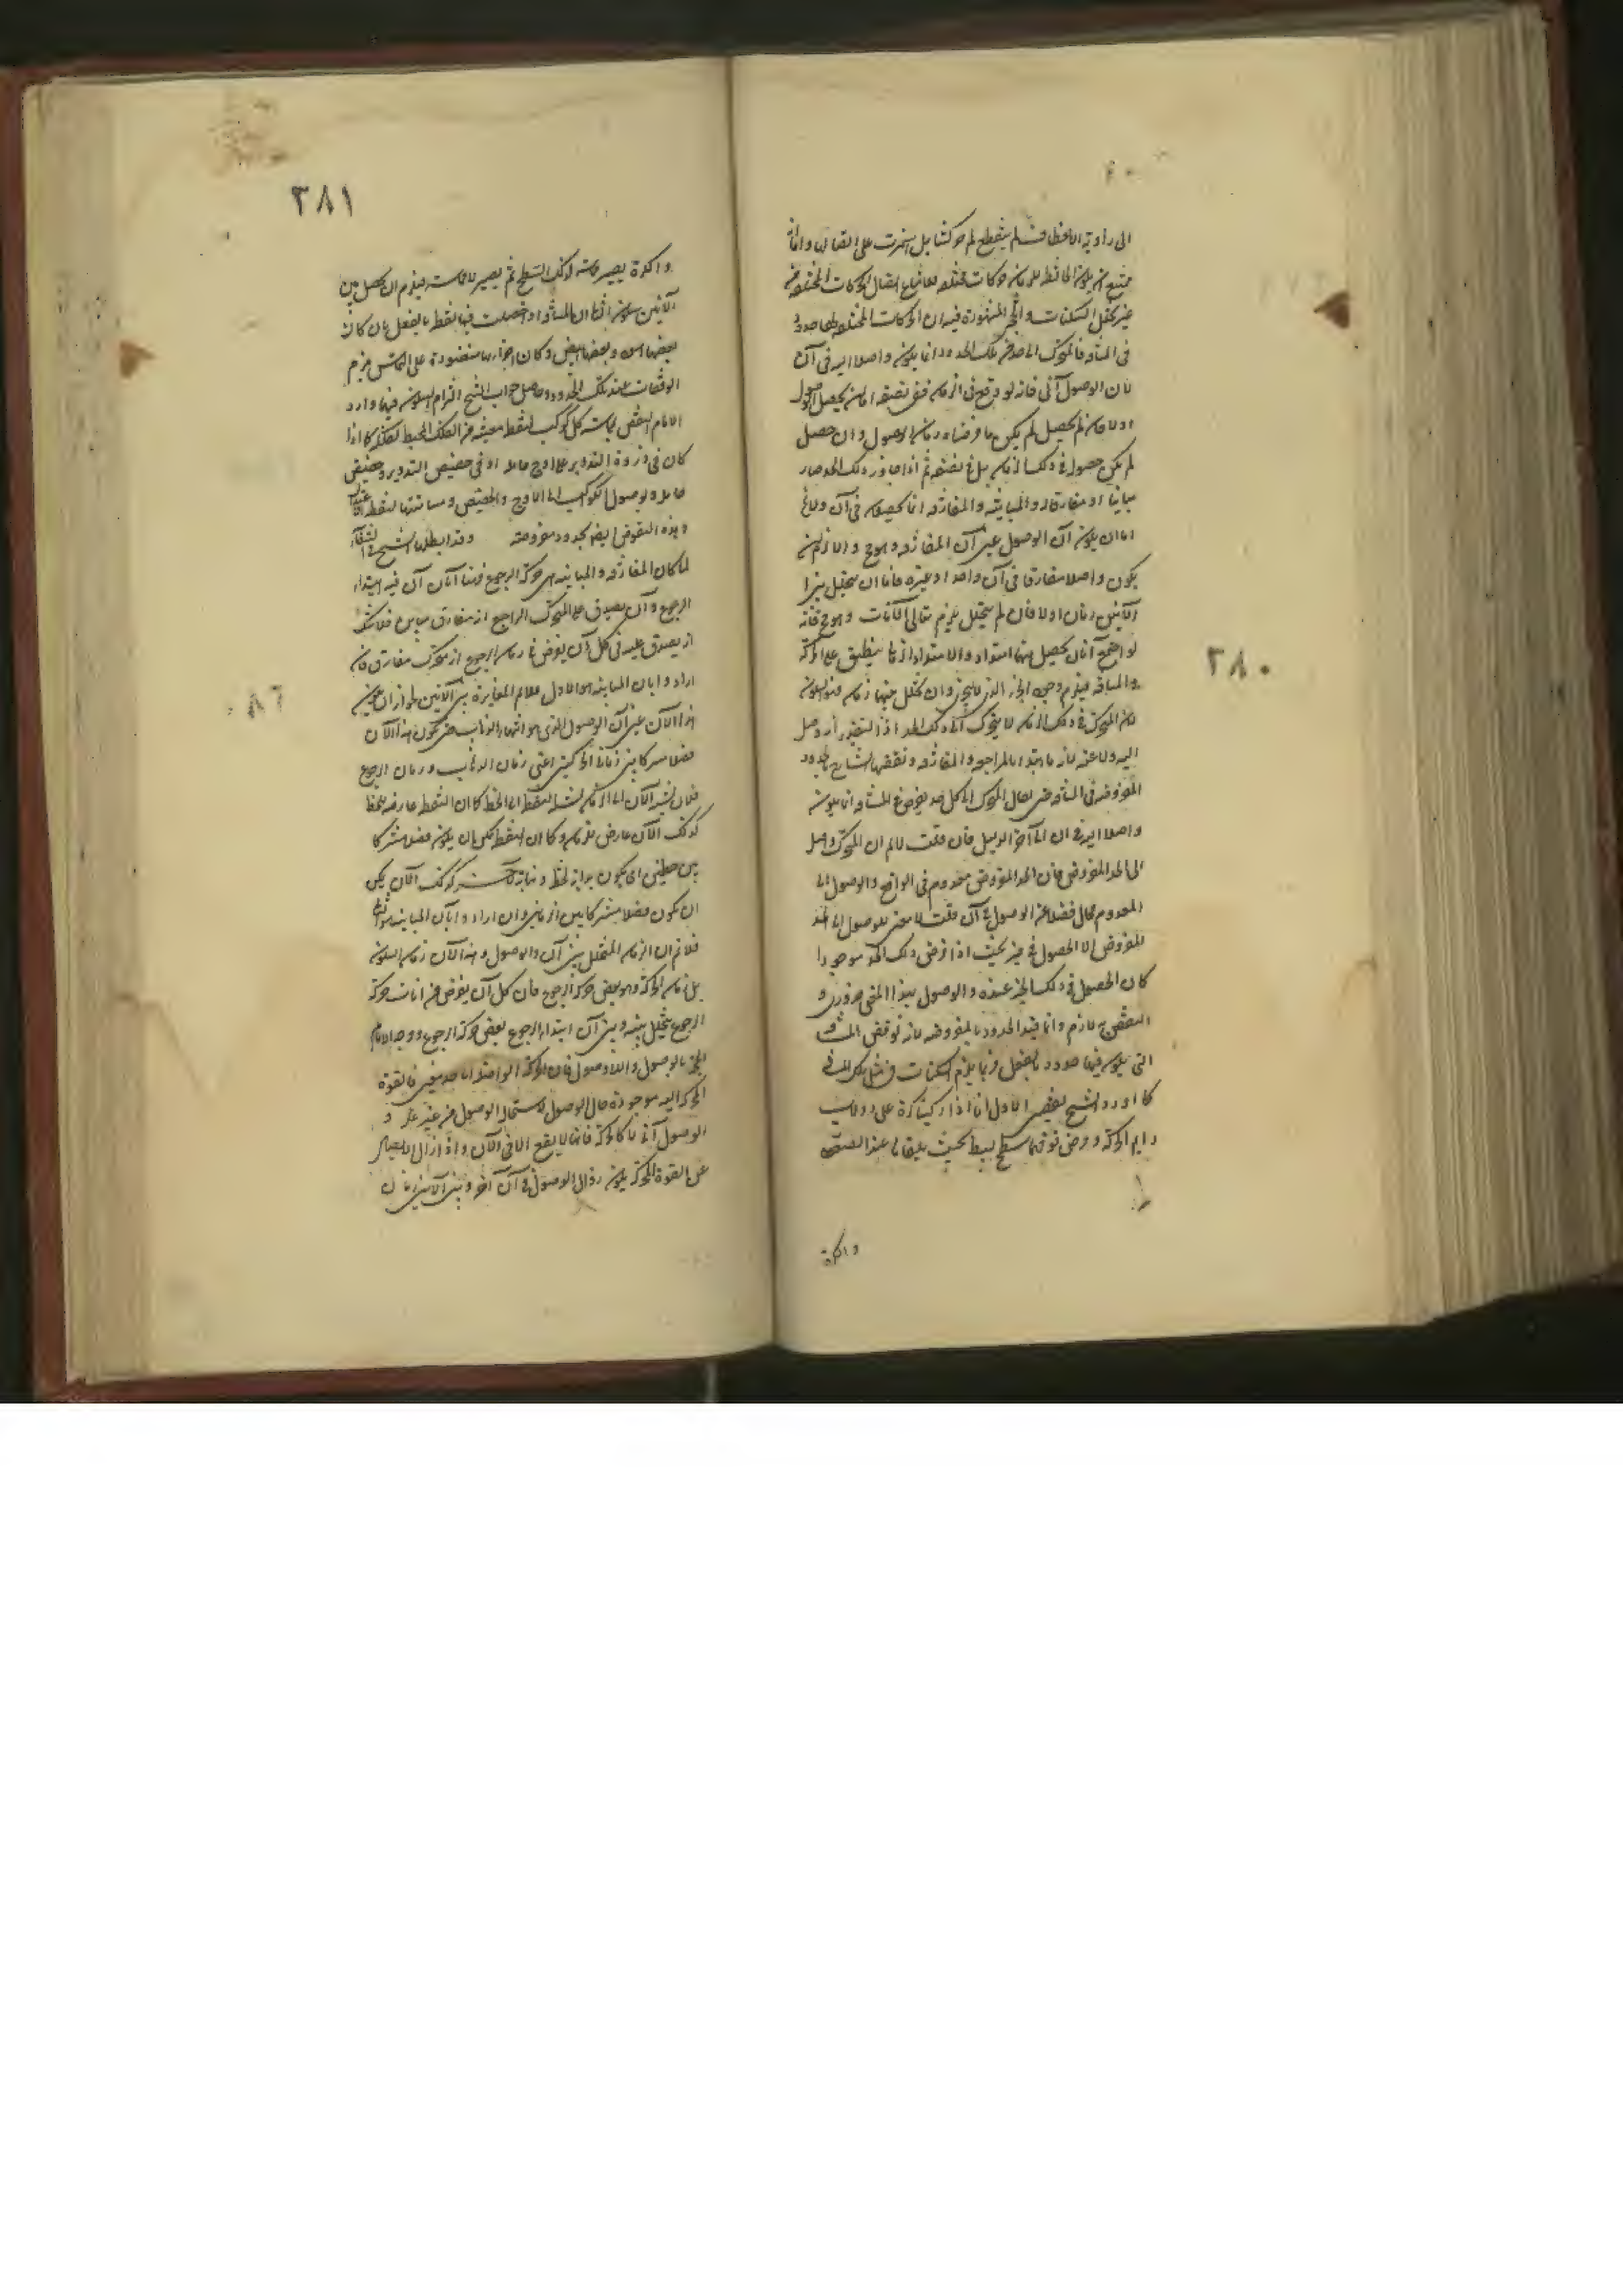 ٣٨٠
الى زاوية
ممتنع ان يكون الحافظ للزمان حركات مختلفة لامتناع اتصال الحركات المختلفة من
غير تخلل السكنات و الحجة المشهورة فيه ان الحركات المختلفة لها حدود
فى المسافة فالمتحرك الى حد من تلك الحدود انما يكون واصلا اليه فى آن
لان الوصول آنى فانه لو وقع فى الزمان ففى نصفه اما ان يحصل الوصول
اولا فان لم يحصل لم يكن ما فرضناه زمان الوصول وان حصل
لم يكن حصوله فى ذلك الزمان بل فى نصفه ثم اذا جاوز ذلك الحد صار
مباينا او مفارقا له والمباينة والمفارقة انما يحصلان فى آن ولا يخ
اما ان يكون آن الوصول عين آن المفارقة وهو مح والا لزم ان
يكون واصلا مفارقا فى آن واحد او غيره فاما ان يتخلل بين
الآنين زمان اولا فان لم يتخلل يلزم تتالى الآنات وهو مح فانه
لو اجتمع آنان يحصل منهما امتداد والامتداد الزمانى ينطبق على الحركة
والمسافة فيلزم وجود الجزء الذى لا يتجزى وان تخلل بينهما زمان فهو السكون
لان المتحرك فى ذلك الزمان لا يتحرك الى ذلك الحد اذ التقدير انه وصل
اليه ولا عنه لانه ما ابتدأ بالمراجعة والمفارقة ونقضها الشارح بالحدود
المفروضة فى المسافة حتى يقال المتحرك الى كل حد يفرض فى المسافة انما يكون
واصلا اليه فى آن الى آخر الدليل فان قلت لا نم ان المتحرك واصل
الى الحد المفروض فان الحد المفروض معدوم فى الواقع والوصول الى
المعدوم محال فضلا عن الوصول فى آن قلت لا معنى للوصول الى الحد
المفروض الا الحصول فى حيز بحيث اذا فرض ذلك الحد موجودا
كان الحصول فى ذلك الحيز عنده والوصول بهذا المعنى ضرورى و
النقض به لازم وانما قيد الحدود بالمفروضة لانه لو نقض بالمسافة
التى يكون فيها حدود بالفعل فربما يلتزم السكنات فى مثل تلك المسافة
كما اورد الشيخ نقضين الاول انا اذا ركبنا كرة على دولاب
دايم الحركة وفرض فوقها سطح بسيط بحيث يلقاها عند الصعود
والكرة
٣٨١
والكرة يصير مماسة لذلك السطح ثم يصير لا مماسة فيلزم ان يحصل بين
الآنين سكون الثانى ان المسافة اذا حصلت فيها نقط بالفعل بان كان
بعضها اسود وبعضها ابيض وكان اجزاؤها منضودة على التماس يلزم
الوقفات عند تلك الحدود وحاصل جواب الشيخ التزام السكون فيها واورد
الامام النقض بمماسة كل كوكب لنقطة معينة من الفلك المحيط بفلكه كما اذا
كان فى ذروة التدوير على اوج حامله او فى حضيض التدوير وحضيض
حامله وبوصول الكوكب الى الاوج والحضيض ومسامتتها لنقطة
وهذه النقوض ايضا بحدود مفروضة وقد ابطلها الشيخ فى الشفاء
لما كان المفارقة والمباينة هى حركة الرجوع فهنا آنان آن فيه ابتداء
الرجوع وآن يصدق على المتحرك الراجع انه مفارق مباين فلا شك
انه يصدق عليه فى كل آن يفرض فى زمان الرجوع انه متحرك مفارق فان
اراد وا بآن المباينة هو الاول فلا نم المغايرة بين الآنين لجواز ان يكون
هذا الآن عين آن الوصول الذى هو انتهاء الذهاب حتى يكون هذا الآن
فصلا مشتركا بين زمانى الحركتين اعنى زمان الذهاب وزمان الرجوع
فان نسبة الآن الى الزمان نسبة النقطة الى الخط كما ان النقطة عارضة للخط
كذلك الآن عارض للزمان وكما ان النقطة يمكن ان يكون فصلا مشتركا
بين خطين اى يكون بداية لخط ونهاية لآخر كذلك الآن يمكن
ان يكون فصلا مشتركا بين الزمانين وان ارادوا بآن المباينة هو الثانى
فلا نم ان الزمان المتخلل بين آن الوصول وهذا الآن زمان السكون
بل زمان الحركة وهو بعض حركة الرجوع فان كل آن يفرض من آنات حركة
الرجوع يتخلل بينه وبين آن ابتداء الرجوع بعض حركة الرجوع ووجه الامام
الحجة بالوصول واللاوصول فان الحركة الواصلة الى حد معين فالقوة
المحركة اليه موجودة حال الوصول لاستحالة الوصول من غير علة و
الوصول آنى لا كالحركة فانها لا يقع الا فى الآن واذا زال الايصال
عن القوة المحركة يكون زوال الوصول فى آن آخر وبين الآنين زمان